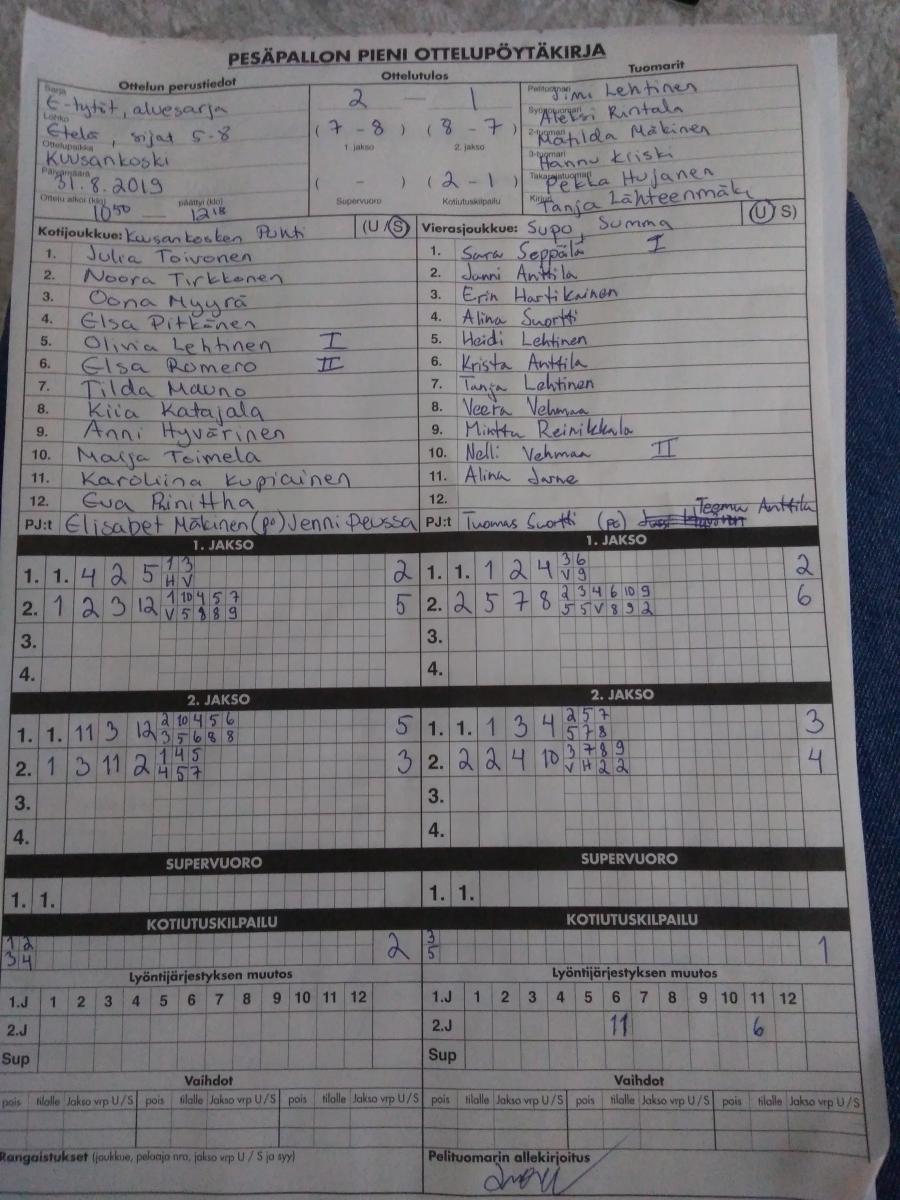 PESÄPALLON PIENI OTTELUPÖYTÄKIRJA
Ottelun perustiedot Ottelutulos Tuomarit
Sarja E-tytöt, aluesarja 2 — 1 Pelituomari Jimi Lehtinen
Lohko Etelä, sijat 5-8 (7 - 8) (8 - 7) Syöttötuomari Aleksi Rintala
1 jakso 2. jakso 2-tuomari Matilda Mäkinen
Ottelupaikka Kuusankoski 3-tuomari Hannu Kriski
Päivämäärä 31.8.2019 ( - ) (2 - 1) Takarajatuomari Pekka Hujanen
Ottelu alkoi (klo) 10 50 — päättyi (klo) 12 18 Supervuoro Kotiutuskilpailu Kirjuri Tanja Lähteenmäki
Kotijoukkue: Kuusankosken Puhti (U / S) Vierasjoukkue: Supo, Summa (U S)
1. Julia Toivonen 1. Sara Seppälä I
2. Noora Tirkkonen 2. Janni Anttila
3. Oona Myyrä 3. Erin Hartikainen
4. Elsa Pitkänen 4. Alina Suortti
5. Olivia Lehtinen I 5. Heidi Lehtinen
6. Elsa Romero II 6. Krista Anttila
7. Tilda Mauno 7. Tanja Lehtinen
8. Kiia Katajala 8. Veera Vehmaa
9. Anni Hyvärinen 9. Minttu Reinikkala
10. Maija Toimela 10. Nelli Vehmaa II
11. Karoliina Kupiainen 11. Alina
12. Eva 12.
PJ:t Elisabet Mäkinen (po) Jenni Peussa PJ:t Tuomas Suortti (po) Teemu Anttila
1. JAKSO 1. JAKSO
1. 1. 4 2 5 1 3 2 1. 1. 1 2 4 3 6 2
H V V 9
2. 1 2 3 12 1 10 4 5 7 5 2. 2 5 7 8 2 3 4 6 10 9 6
V 5 8 8 9 5 5 V 8 9 2
3. 3.
4. 4.
2. JAKSO 2. JAKSO
1. 1. 11 3 12 2 10 4 5 6 5 1. 1. 1 3 4 2 5 7 3
3 5 6 8 8 5 7 8
2. 1 3 11 2 1 4 5 3 2. 2 2 4 10 3 7 8 9 4
4 5 7 V H 2 2
3. 3.
4. 4.
SUPERVUORO SUPERVUORO
1. 1. 1. 1.
KOTIUTUSKILPAILU KOTIUTUSKILPAILU
1 2 2 3 1
3 4 5
Lyöntijärjestyksen muutos Lyöntijärjestyksen muutos
1.J 1 2 3 4 5 6 7 8 9 10 11 12 1.J 1 2 3 4 5 6 7 8 9 10 11 12
2.J 2.J 11 6
Sup Sup
Vaihdot Vaihdot
pois tilalle Jakso vrp U / S pois tilalle Jakso vrp U / S pois tilalle Jakso vrp U / S pois tilalle Jakso vrp U / S pois tilalle Jakso vrp U / S pois tilalle Jakso vrp U / S
Rangaistukset (joukkue, pelaaja nro, jakso vrp U / S ja syy) Pelituomarin allekirjoitus